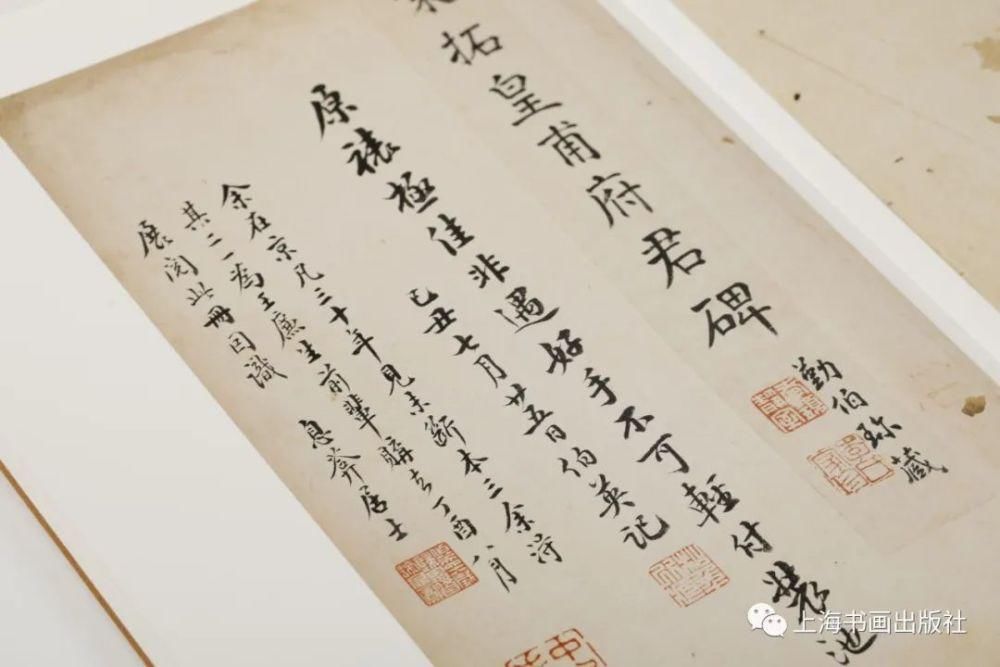 拓皇甫府君碑
勤伯珍藏
原裱極佳非遇好手不可輕付裝池
己丑七月廿五日伯英记
余在京凡三十年見未斷本三余淂
其二一為王廉生前輩購去丁酉八月
展閱此冊因識 息菴居士
上海书画出版社